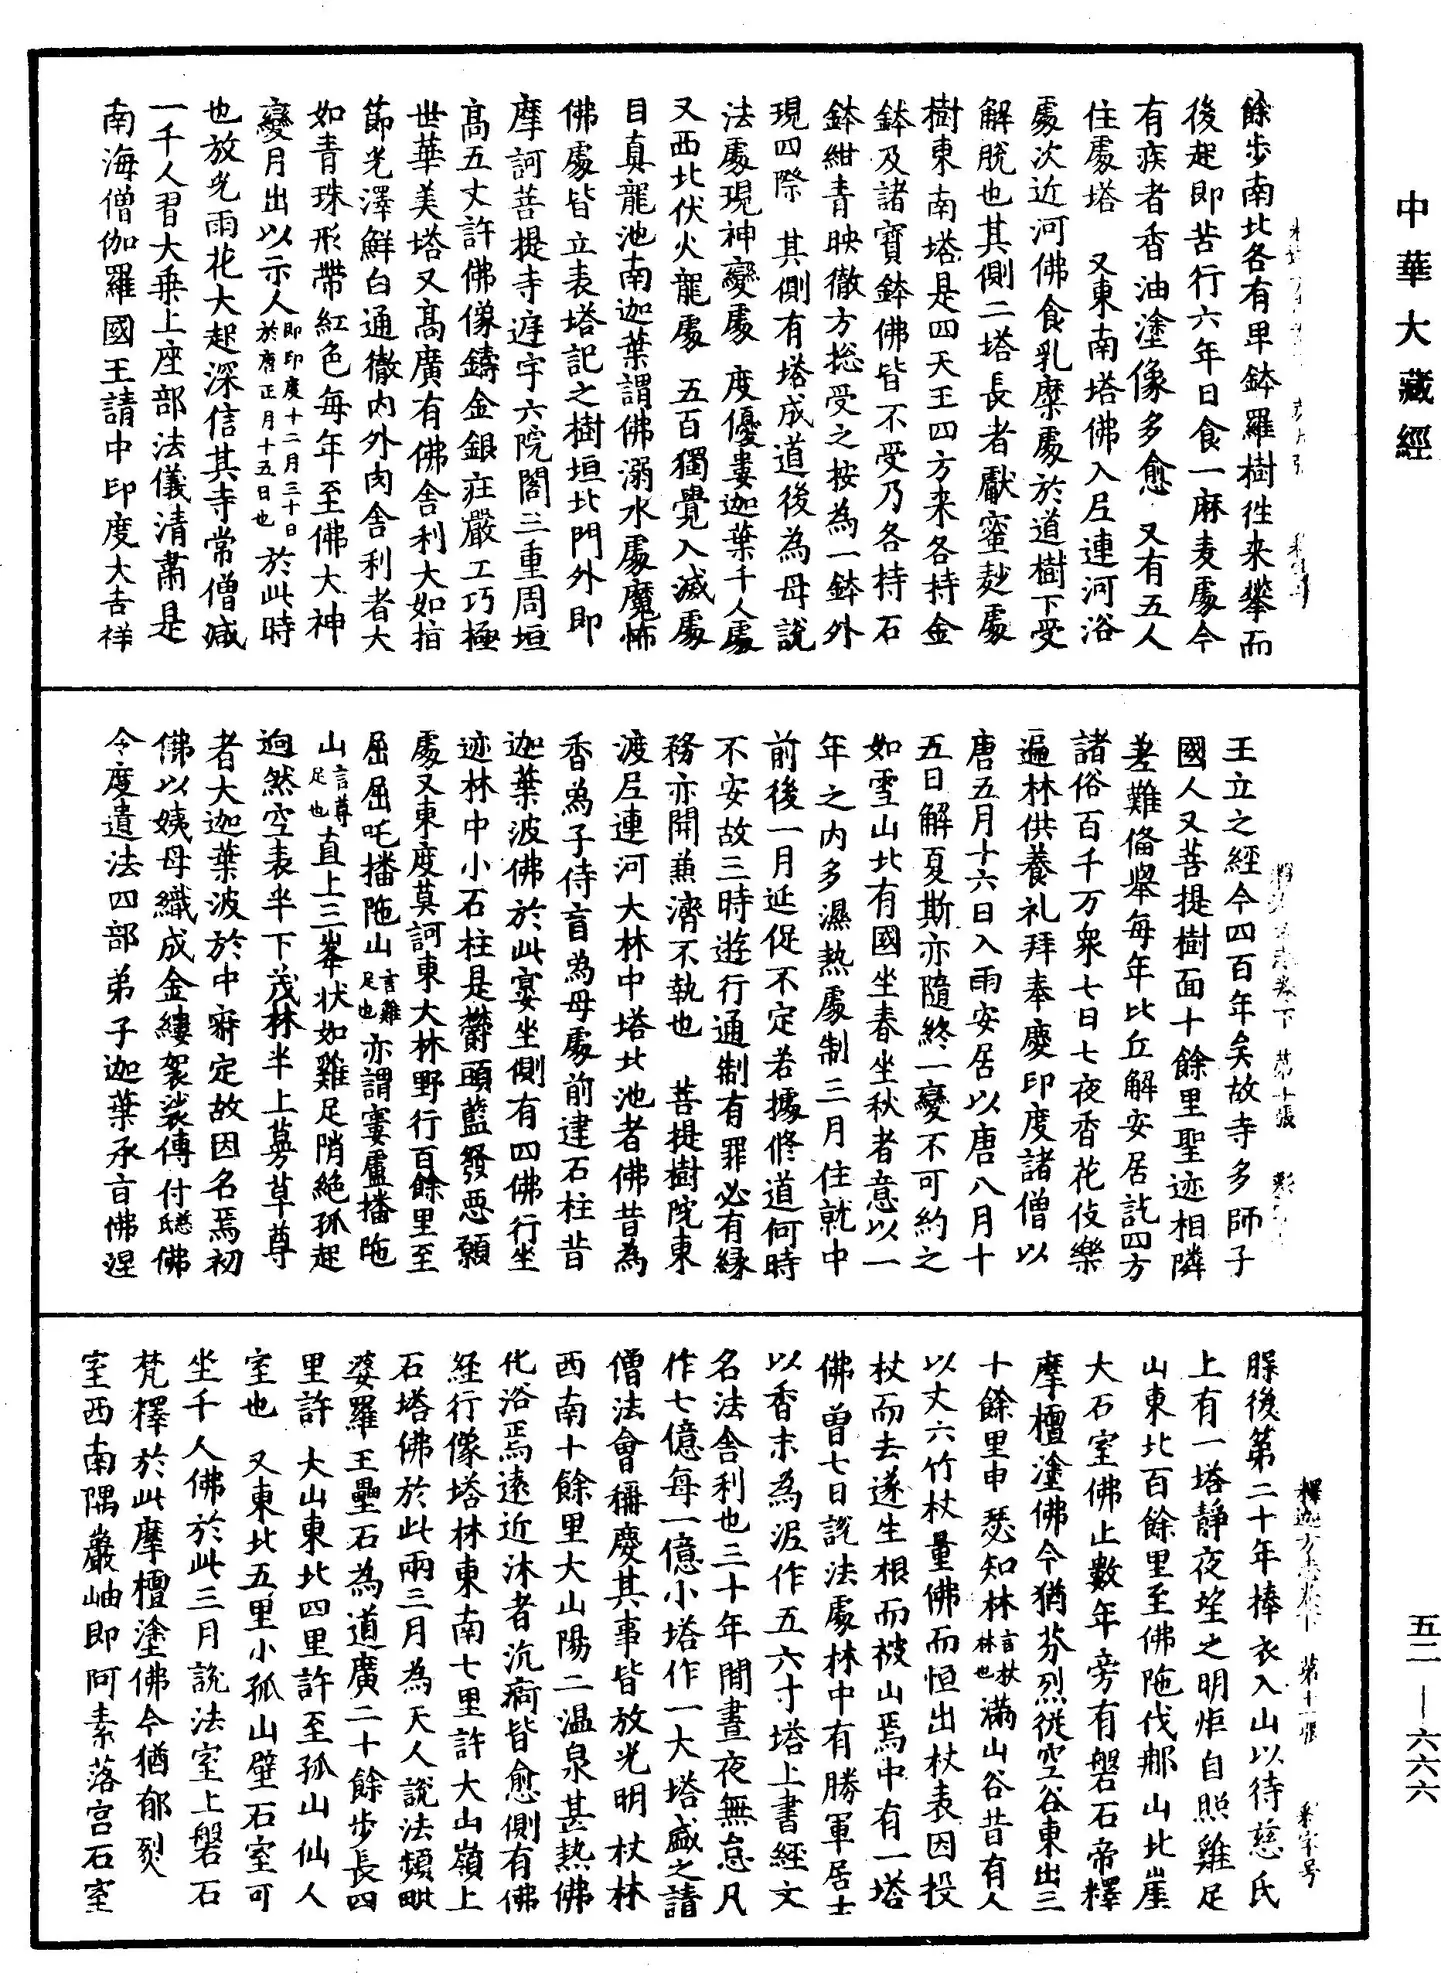 中華大藏經
餘步南北各有卑鉢羅樹徃来攀而
後起即苦行六年日食一麻麦處今
有疾者香油塗像多愈　又有五人
住處塔　又東南塔佛入尼連河浴
處次近河佛食乳糜處於道樹下受
解脫也其側二塔長者獻蜜麨處
樹東南塔是四天王四方来各持金
鉢及諸寶鉢佛皆不受乃各持石
鉢紺青映徹方捴受之按為一鉢外
現四際　其側有塔成道後為母說
法處現神變處　度優婁迦葉千人處
又西北伏火龍處　五百獨覺入滅處
目真龍池南迦葉謂佛溺水處魔怖
佛處皆立表塔記之樹垣北門外即
摩訶菩提寺逹宇六院閣三重周垣
高五丈許佛像鑄金銀莊嚴工巧極
世華美塔又高廣有佛舍利大如指
節光澤鮮白通徹内外肉舍利者大
如青珠形帶紅色每年至佛大神
變月出以示人即印度十二月三十日於唐正月十五日也於此時
也放光雨花大起深信其寺常僧減
一千人習大乗上座部法儀清肅是
南海僧伽羅國王請中印度大吉祥
釋迦方志卷下　第十張
王立之經今四百年矣故寺多師子
國人又菩提樹面十餘里聖迹相隣
差難俻舉每年比丘解安居訖四方
諸俗百千万衆七日七夜香花伎樂
遍林供養礼拜奉慶印度諸僧以
唐五月十六日入雨安居以唐八月十
五日解夏斯亦隨終一變不可約之
如雪山北有國坐春坐秋者意以一
年之内多濕熱處制三月住就中
前後一月延促不定若據修道何時
不安故三時遊行通制有罪必有縁
務亦開兼濟不執也　菩提樹院東
渡尼連河大林中塔北池者佛昔為
香鳥子侍盲鳥母處前建石柱昔
迦葉波佛於此宴坐側有四佛行坐
迹林中小石柱是欝頭藍發惡願
處又東度莫訶東大林野行百餘里至
屈屈吒播陁山言雞足也亦謂窶盧播陁
山言尊足也直上三峯状如雞足陗絶孤起
逈然空表半下茂林半上蔓草尊
者大迦葉波於中寂定故因名焉初
佛以姨母織成金縷袈裟傳付慈氏佛
令度遺法四部弟子迦葉承㫖佛涅
釋迦方志卷下　第十一張
槃後第二十年捧衣入山以待慈氏
上有一塔靜夜望之明炬自照雞足
山東北百餘里至佛陁伐那山北崖
大石室佛止數年旁有磐石帝釋
摩檀塗佛今猶芬烈從空谷東出三
十餘里申瑟知林言杖林也滿山谷昔有人
以丈六竹杖量佛而恒出杖表因投
杖而去遂生根而被山焉中有一塔
佛曽七日說法處林中有勝軍居士
以香末為泥作五六寸塔上書經文
名法舍利也三十年間晝夜無怠凡
作七億每一億小塔作一大塔盛之請
僧法會稱慶其事皆放光明杖林
西南十餘里大山陽二温泉甚熱佛
化浴焉遠近沐者沉痾皆愈側有佛
経行像塔林東南七里許大山嶺上
石塔佛於此兩三月為天人說法頻毗
婆羅王壘石為道廣二十餘步長四
里許　大山東北四里許至孤山仙人
室也　又東北五里小孤山壁石室可
坐千人佛於此三月說法室上磐石
梵釋於此摩檀塗佛今猶郁烈
室西南隅巖岫即阿素落宫石室
五二—六六六